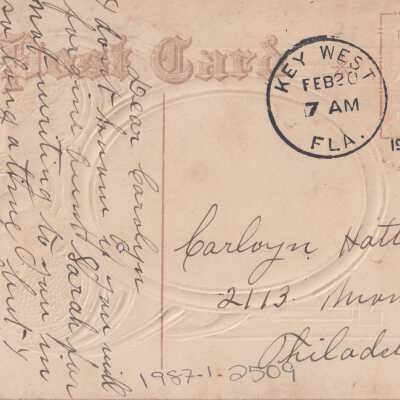 Post Card
KEY WEST
FEB 20
7 AM
FLA.
19
Dear Carolyn
I don't know if you will
forgive Aunt Sarah for
not writing to you in
so long a time
but I
Carloyn Hatt
2113. Mon
Philade
1987-1-2509